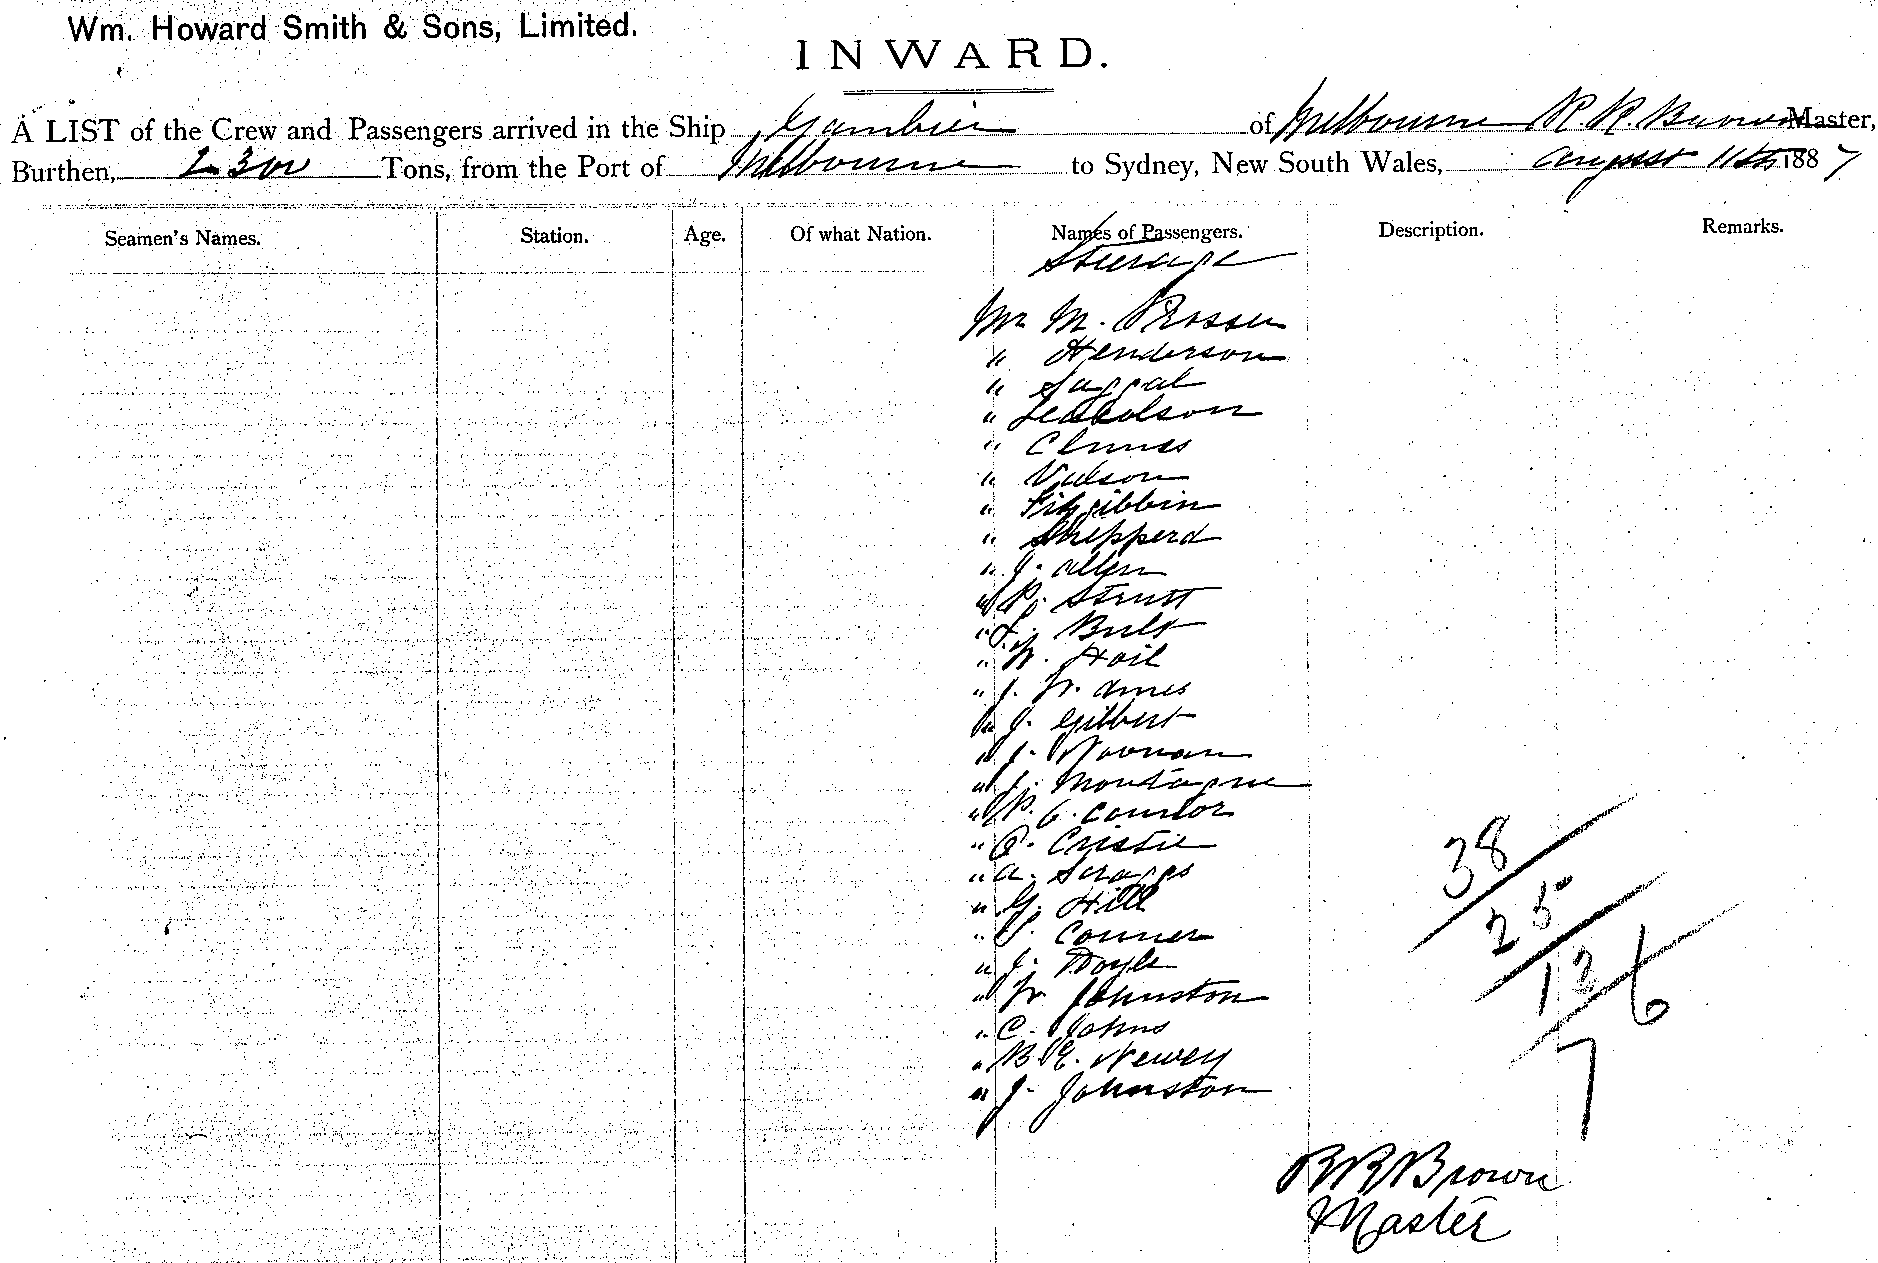 Wm. Howard Smith & Sons, Limited.
INWARD.
A LIST of the Crew and Passengers arrived in the Ship Gambier of Melbourne R R Brown Master,
Burthen, Tons, from the Port of Melbourne to Sydney, New South Wales, August 11th 1887
Seamen's Names. Station. Age. Of what Nation. Names of Passengers. Description. Remarks.
Steerage
Mr M. Prosser
" Henderson
" Suggal
"
" Clunes
"
" Fitzgibbin
" Shepperd
" J. Allen
" P. Strutt
" Bult
" W. Hoil
" J. W. Ames
" J. Gilbert
" J. Noonan
" J. Montague
" P. C. Connor
" Cristie
" A. Scraggs
" G. Hill
" Conner
" J. Doyle
" W. Johnston
" C. Johns
" B. E. Newey
" J. Johnston
38
25
12 6
7
R R Brown
Master